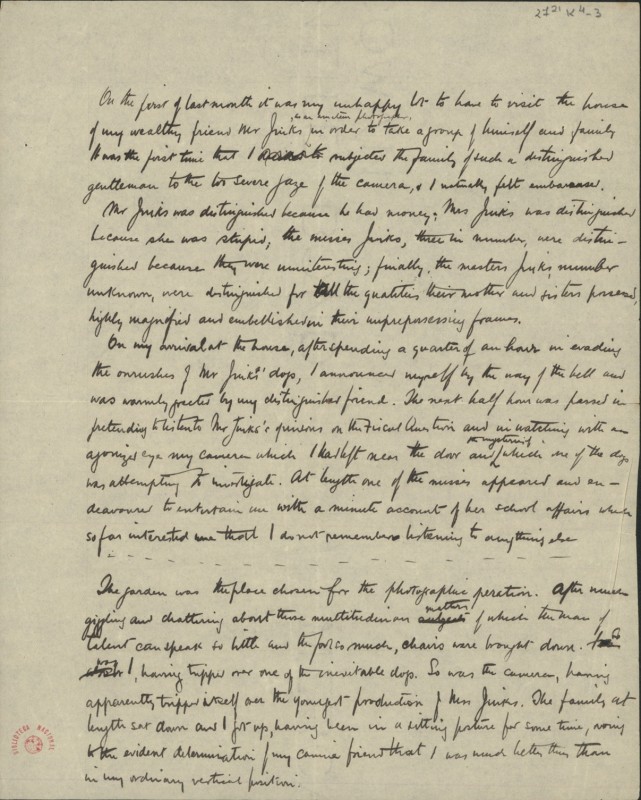 27 21 K 4-3
On the first of last month it was my unhappy lot to have to visit the house
as an amateur photographer,
of my wealthy friend Mr Jinks, in order to take a group of himself and family
It was the first time that I subjected the family of such a distinguished
gentleman to the too severe gaze of the camera, & I naturally felt embarassed.
Mr Jinks was distinguished because he had money; Mrs Jinks was distinguished
because she was stupid; the misses Jinks, three in number, were distin-
guished because they were uninteresting; finally, the masters Jinks, number
unknown, were distinguished for all the qualities their mother and sisters possessed,
highly magnified and embellished in their unprepossessing frames.
On my arrival at the house, after spending a quarter of an hour in evading
the onrushes of Mr Jinks' dogs, I announced myself by the way of the bell and
was warmly greeted by my distinguished friend. The next half hour was passed in
pretending to listen to Mr Jinks's opinions on the Fiscal Question and in watching with an
agonized eye my camera which I had left near the door and which one of the dogs
the mysteries of
was attempting to investigate. At length one of the misses appeared and en-
deavoured to entertain me with a minute account of her school affairs which
so far interested me that I do not remember listening to anything else
The garden was the place chosen for the photographic operation. After much
giggling and chattering about those multitudinous
matters
of which the man of
talent can speak so little and the fool so much, chairs were brought down. So
was I, having tripped over one of the inevitable dogs. So was the camera, having
apparently tripped itself over the youngest production of Mrs Jinks. The family at
length sat down and I got up, having been in a sitting posture for some time, owing
to the evident determination of my canine friend that I was much better thus than
in my ordinary vertical position.
BIBLIOTECA NACIONAL